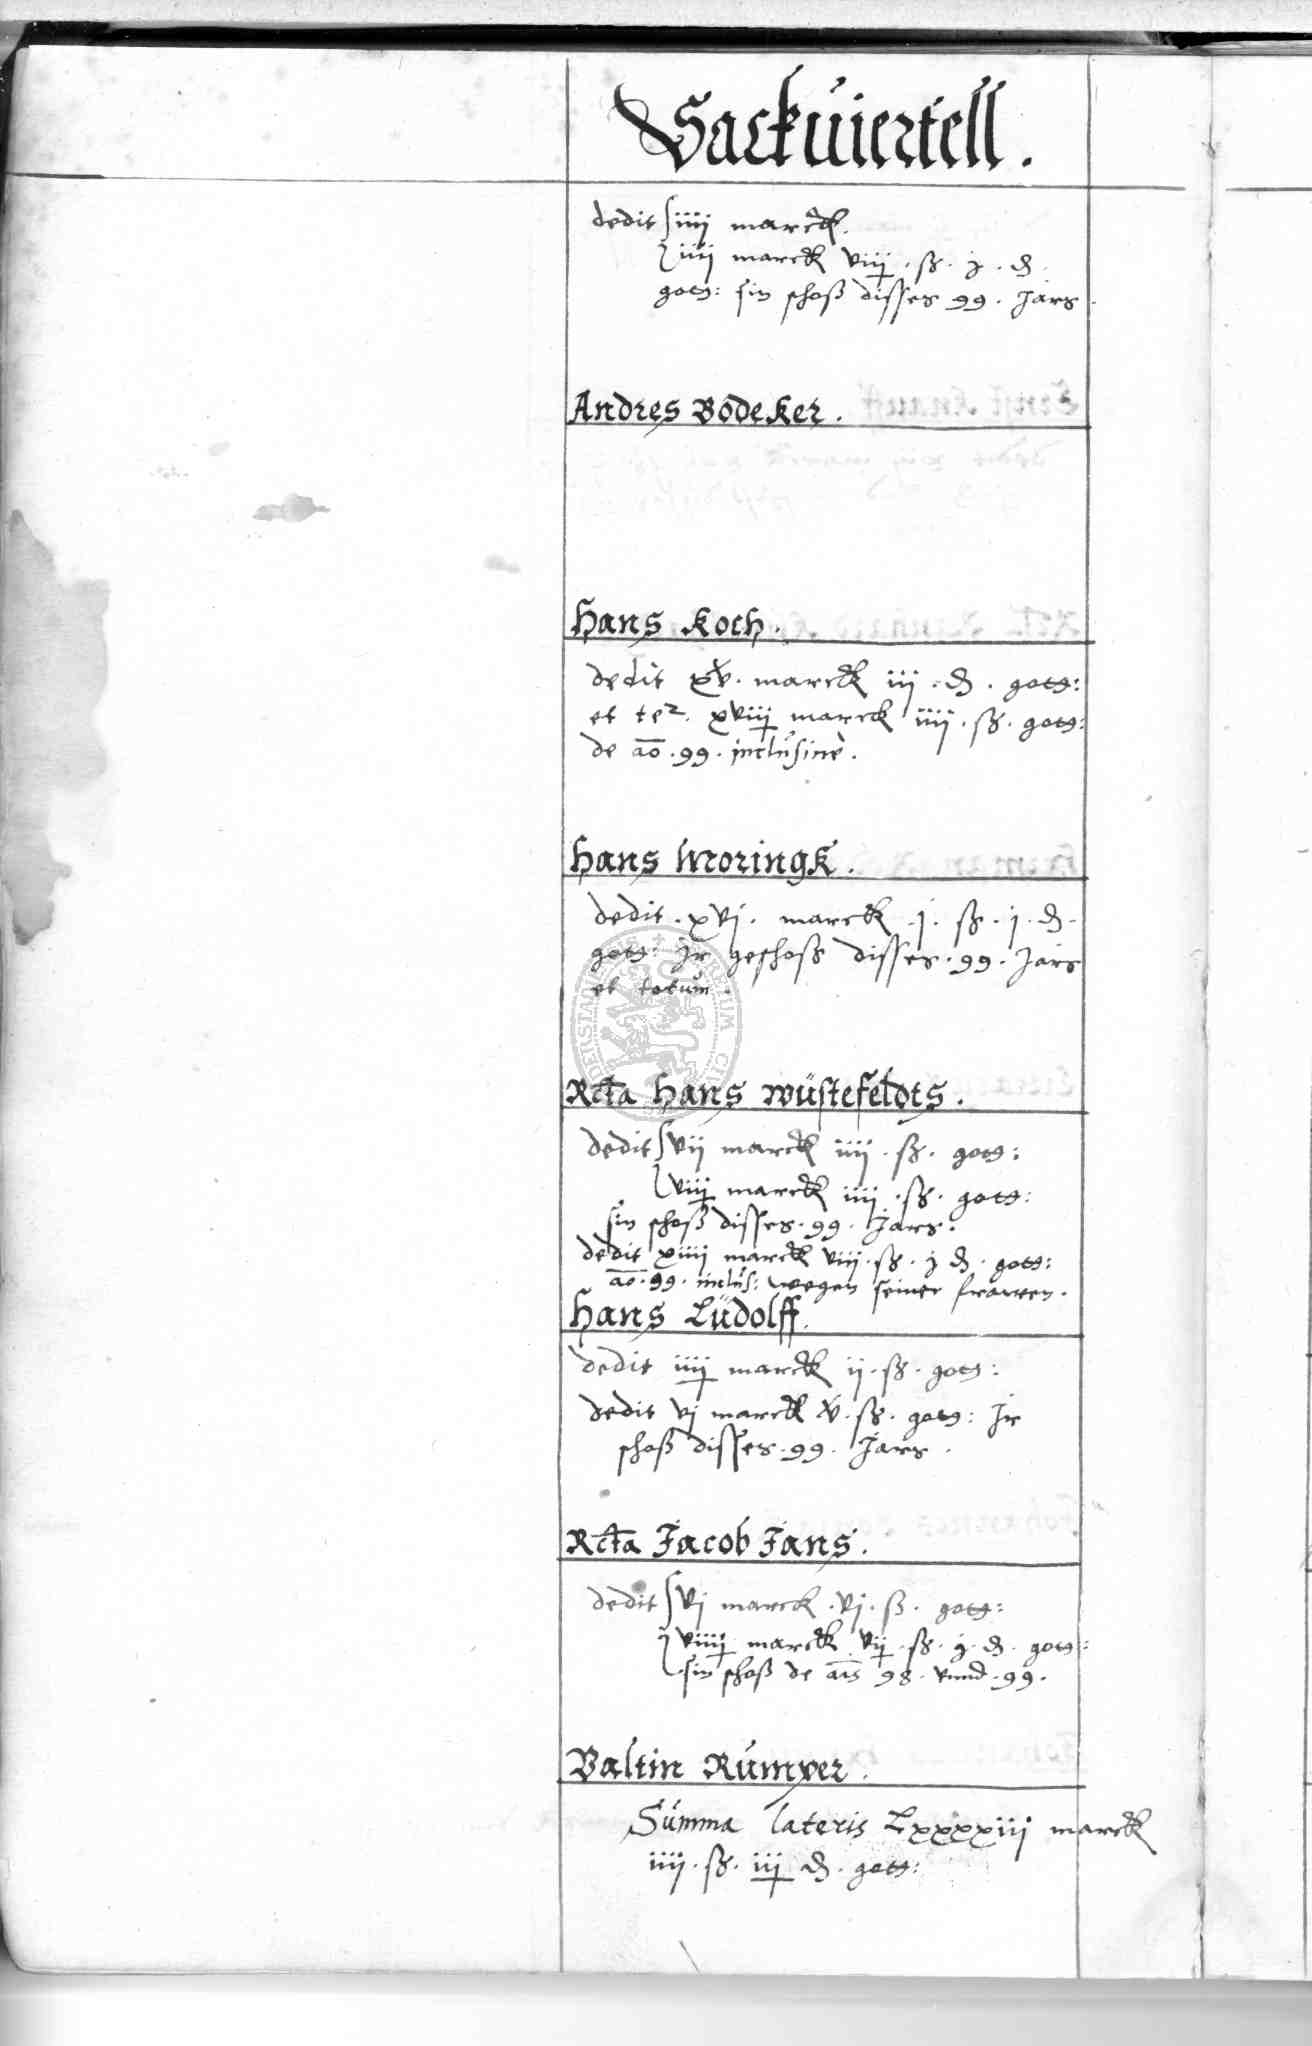 Sackuiertell.
dedit iiij marck.
iiij marck viij . ß . j . ₰ .
gotg: sin schoß disses 99 . Jars .
Andres Bodeker .
Hans Koch .
dedit xv . marck iij . ₰ . gotg:
et te2 . xviij marck iiij . ß . gotg:
de ao . 99 . inclusiue .
Hans Moringk .
dedit . xvj . marck . j . ß . j . ₰ .
gotg: Jr geschoß disses . 99 . Jars
et totum .
Rcta Hans Wüstefeldts .
dedit vij marck iiij . ß . gotg:
viij marck iiij . ß . gotg:
sin schoß disses . 99 . Jars .
dedit xiiij marck viij . ß . j ₰ . gotg:
ao . 99 . inclus: wegen seiner frawen .
Hans Ludolff .
dedit iiij marck ij . ß . gotg:
dedit vj marck xv . ß . gotg: Jr
schoß disses . 99 . Jars .
Rcta Jacob Jans .
dedit vj marck . vj . ß . gotg:
viiij marck vij . ß . j . ₰ . gotg:
sin schoß de ais 98 . vnnd . 99 .
Valtin Rumper .
Summa lateris Lxxxxiij marck
iiij . ß . iij ₰ . gotg: